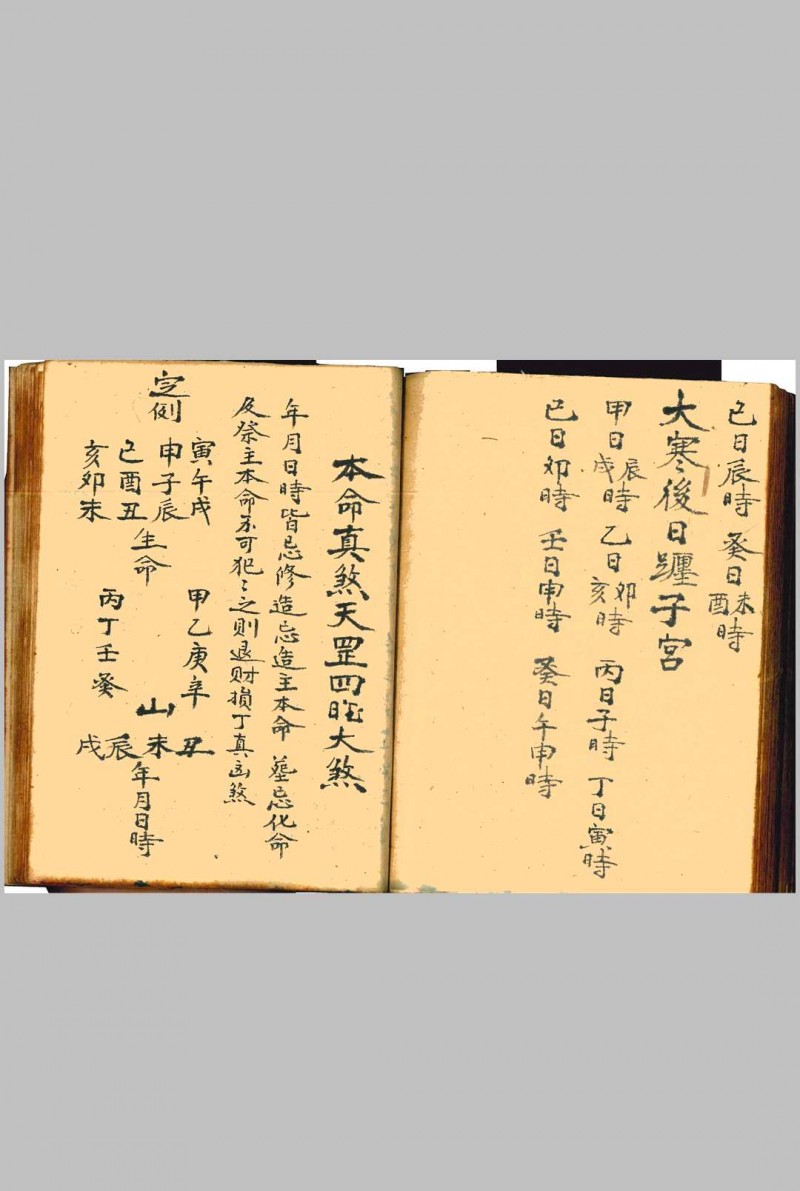 己日辰時　癸日未酉時
大寒後日躔子宮
甲日辰戌時　乙日卯亥時　丙日子時　丁日寅時
己日卯時　壬日申時　癸日午申時
本命真煞天罡四旺大煞
年月日時皆忌修造忌造主本命　墓忌化命
及祭主本命不可犯〻之則退財損丁真凶煞
定例
寅午戌　甲乙庚辛　丑
申子辰　生命　山　未
巳酉丑　丙丁壬癸　辰　年月日時
亥卯未　戌